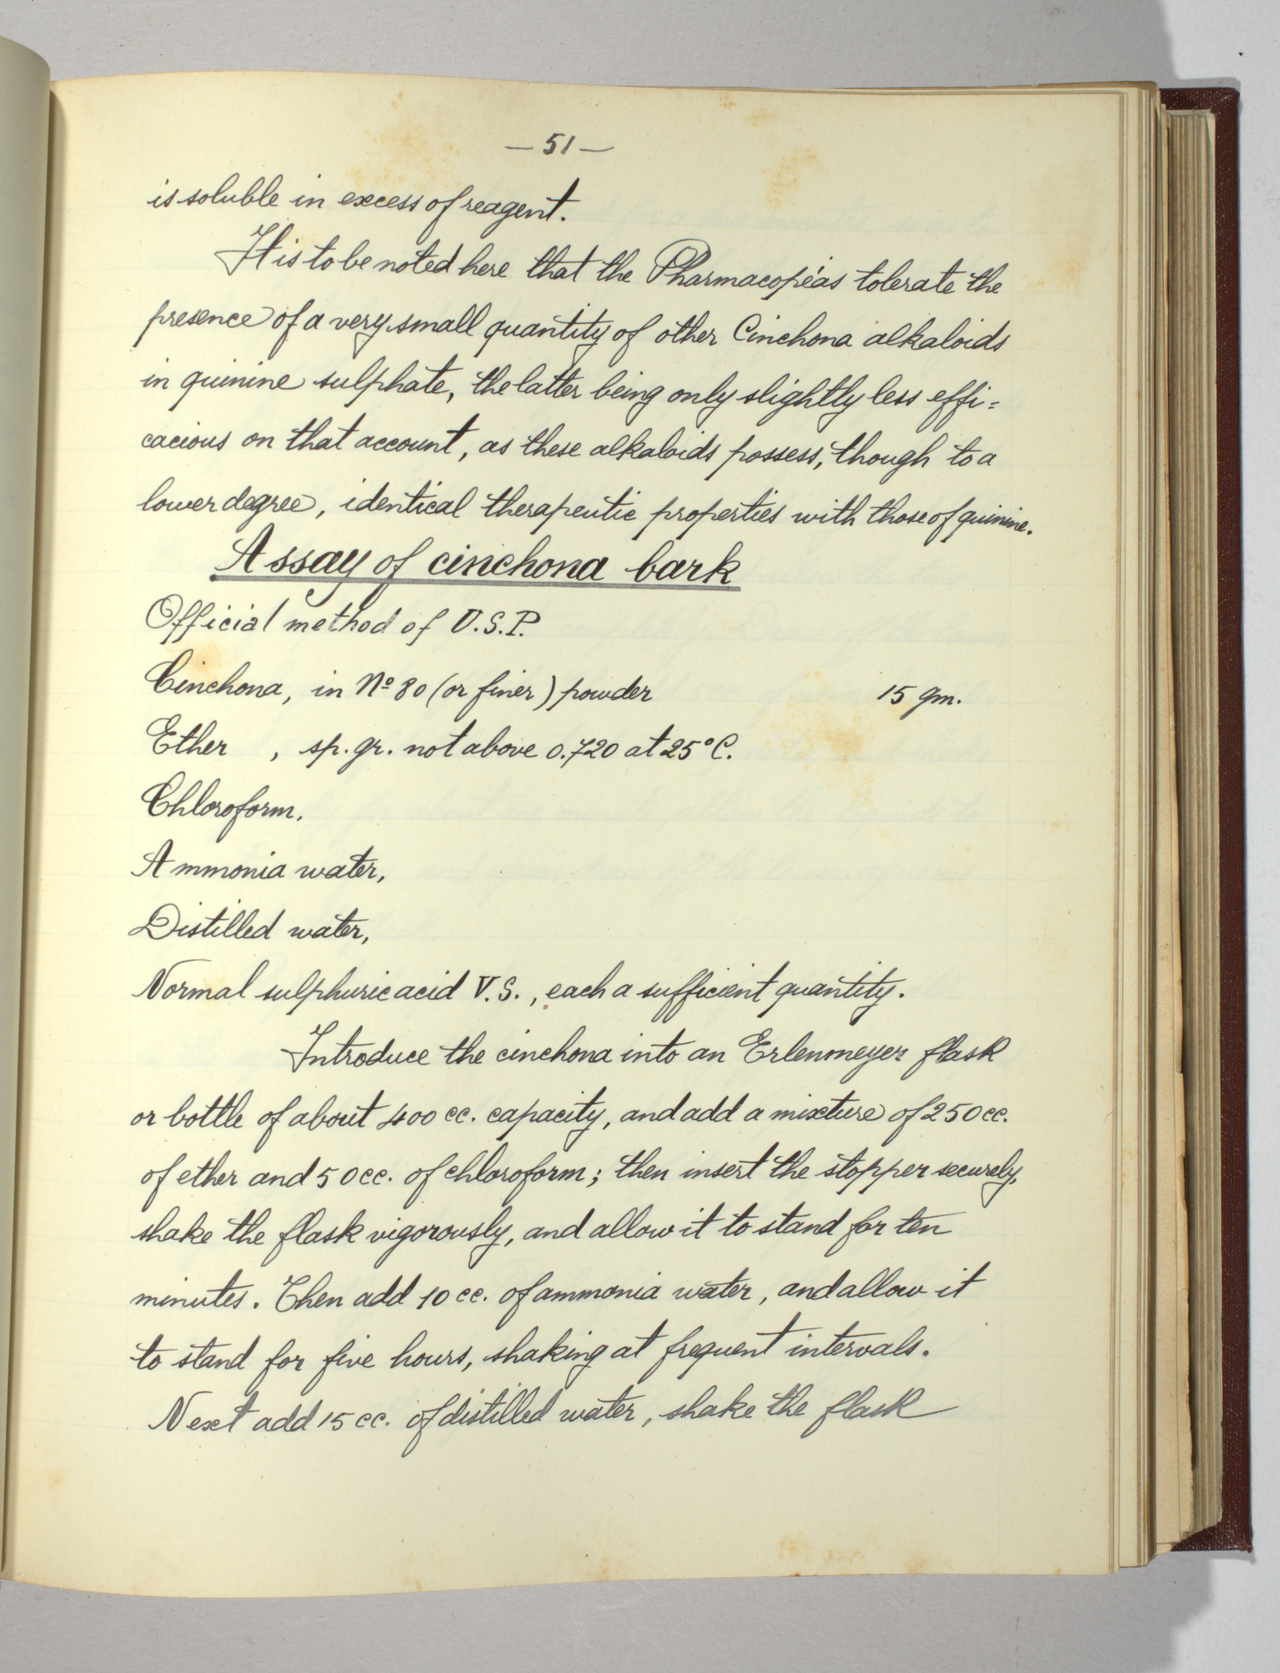 — 51 —
is soluble in excess of reagent.
It is to be noted here that the Pharmacopéas tolerate the
presence of a very small quantity of other Cinchona alkaloids
in quinine sulphate, the latter being only slightly less effi=
cacious on that account, as these alkaloids possess, though to a
lower degree, identical therapeutic properties with those of quinine.
Assay of cinchona bark
Official method of U.S.P.
Cinchona, in Nº 80 (or finer) powder 15 gm.
Ether , sp. gr. not above 0.720 at 25°C.
Chloroform.
Ammonia water,
Distilled water,
Normal sulphuric acid V.S., each a sufficient quantity.
Introduce the cinchona into an Erlenmeyer flask
or bottle of about 400 cc. capacity, and add a mixture of 250 cc.
of ether and 50 cc. of chloroform; then insert the stopper securely,
shake the flask vigorously, and allow it to stand for ten
minutes. Then add 10 cc. of ammonia water, and allow it
to stand for five hours, shaking at frequent intervals.
Next add 15 cc. of distilled water, shake the flask